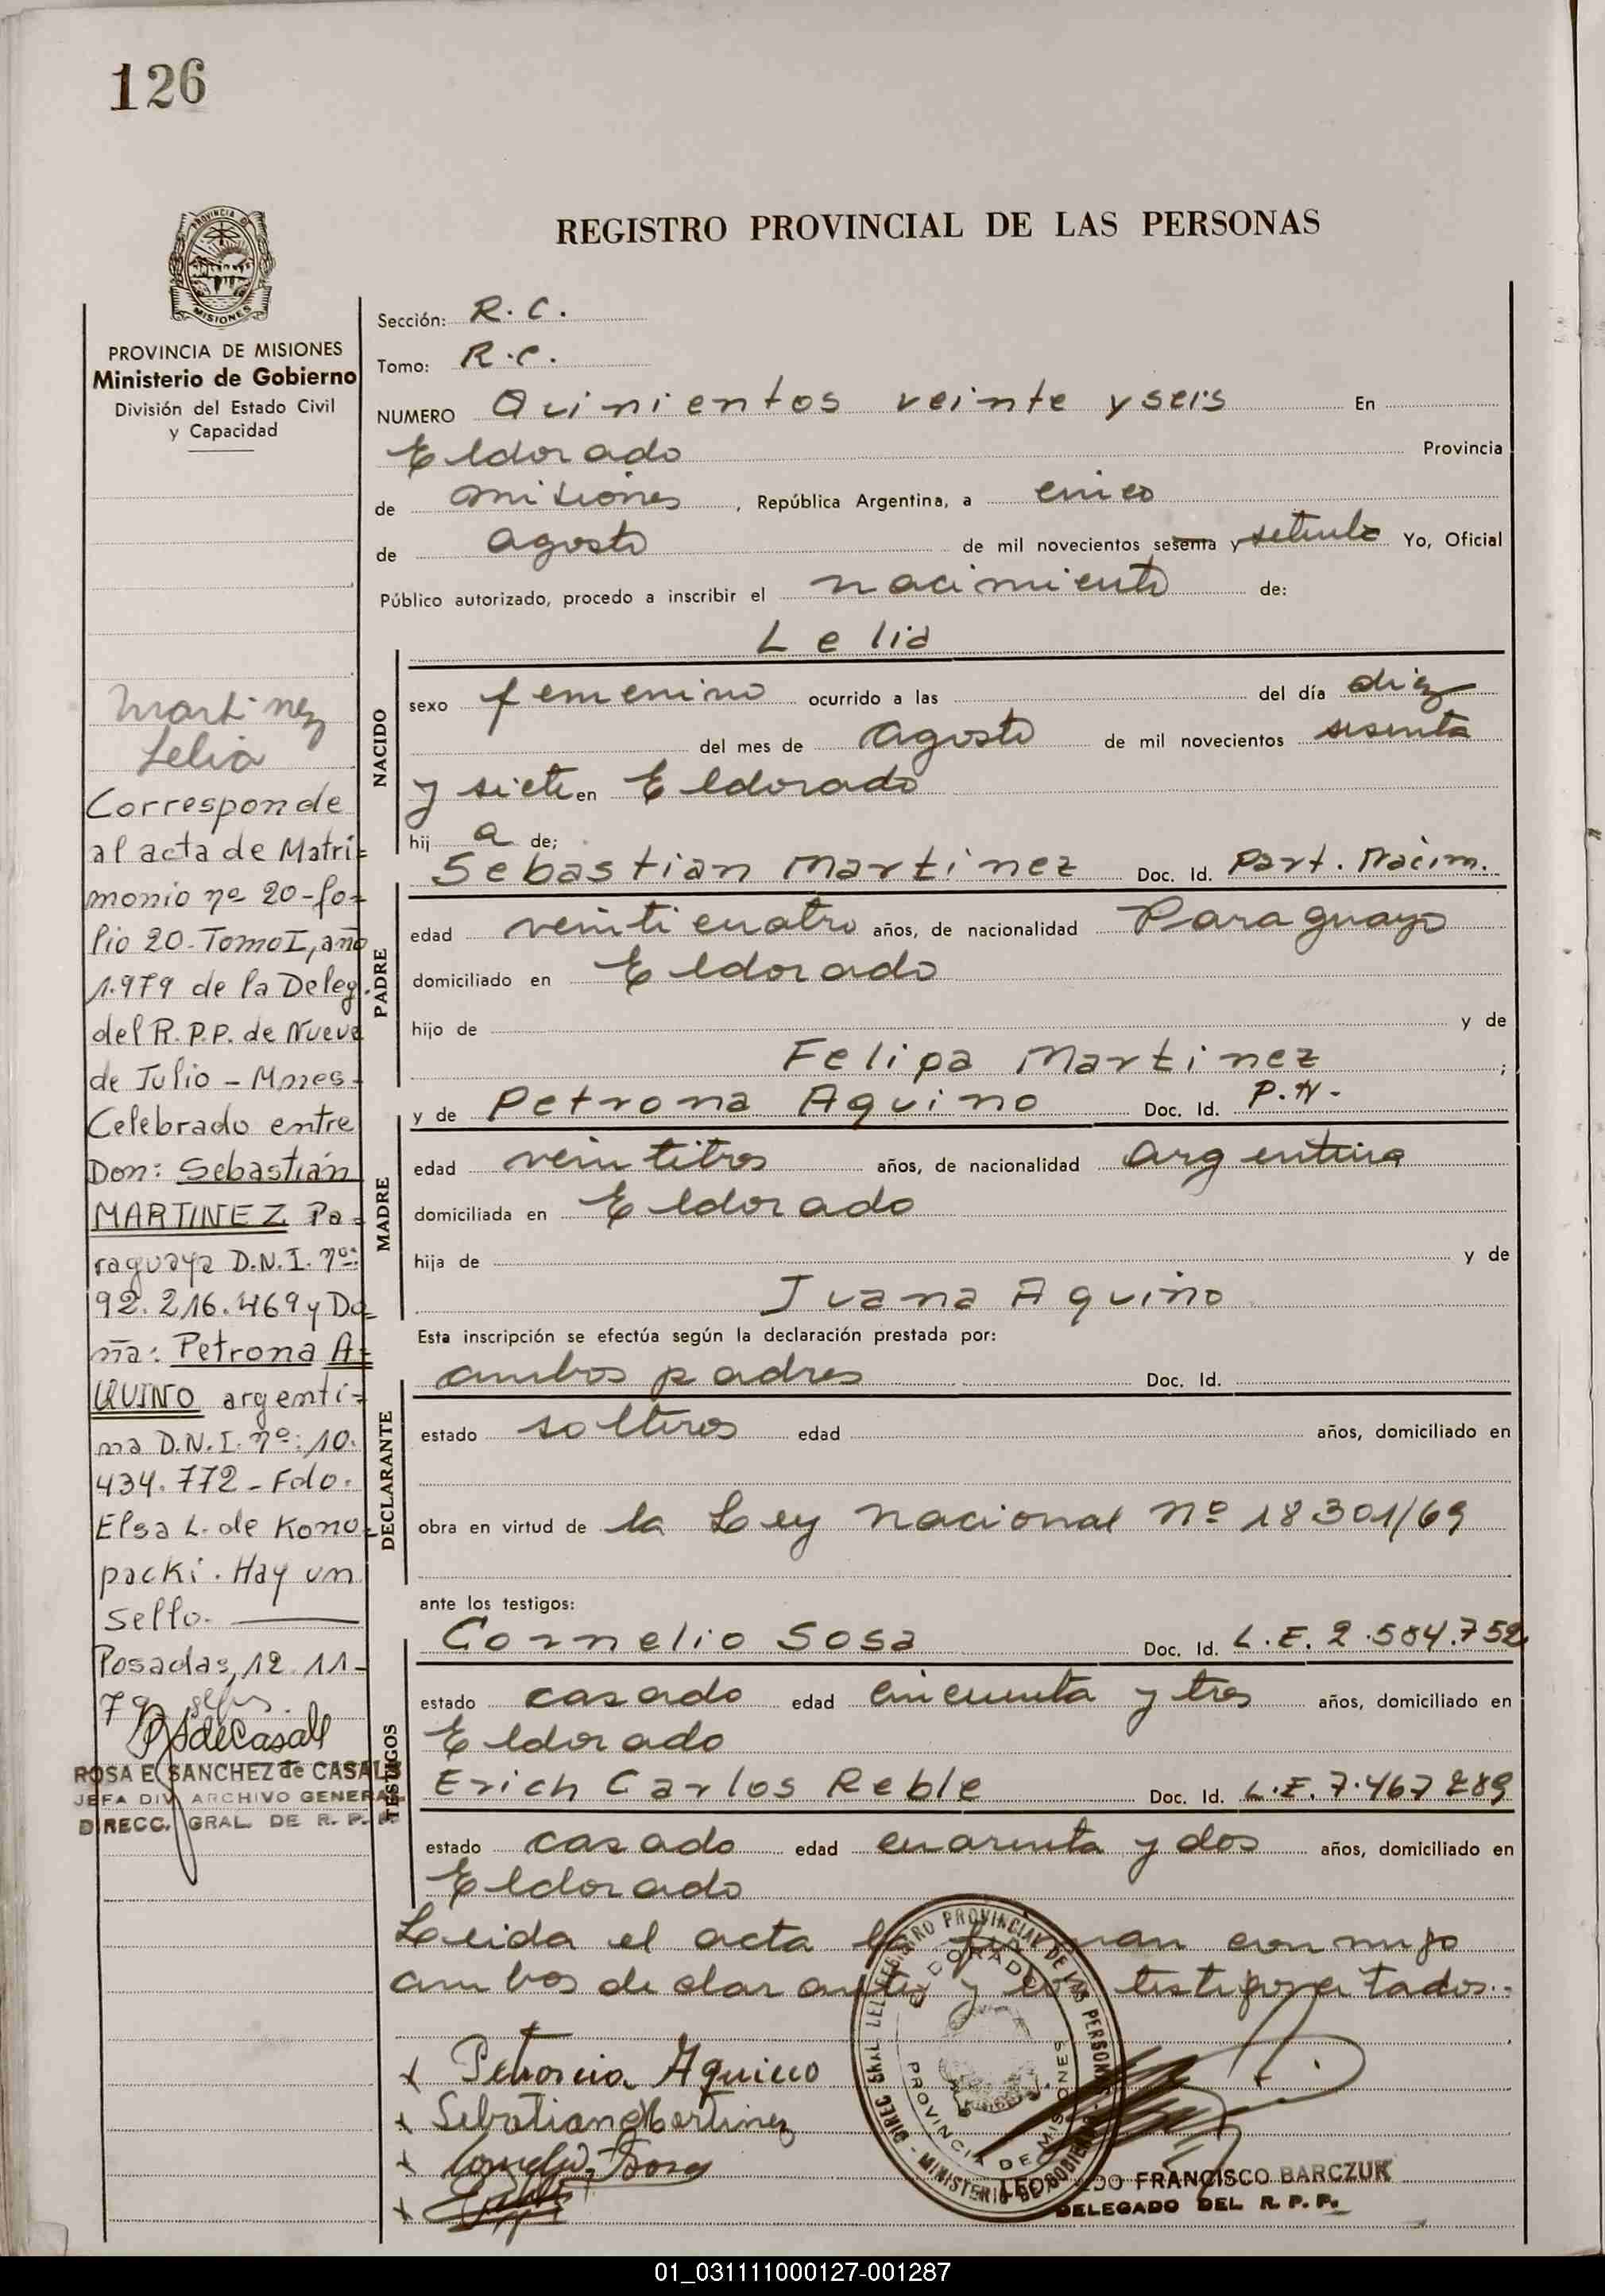 126
REGISTRO PROVINCIAL DE LAS PERSONAS
PROVINCIA DE MISIONES
Ministerio de Gobierno
División del Estado Civil
y Capacidad
Martinez
Lelia
Corresponde
al acta de Matri=
monio nº 20-fo=
lio 20-Tomo I, año
1.979 de la Deleg.
del R.P.P. de Nueve
de Julio - Mnes-
Celebrado entre
Don: Sebastián
MARTINEZ Pa=
raguaya D.N.I. nº:
92.216.469 y Do=
ña: Petrona A=
QUINO argenti=
na D.N.I. nº: 10.
434.772 - Fdo.
Elsa L. de Kono=
packi. Hay un
sello.
Posadas, 12.11-
79
RSdeCasals
ROSA E. SANCHEZ de CASALS
JEFA DIV. ARCHIVO GENERAL
DIRECC. GRAL. DE R. P. P.
Sección: R.C.
Tomo: R.C.
NUMERO Quinientos veinte y seis En
Eldorado Provincia
de Misiones, República Argentina, a cinco
de agosto de mil novecientos sesenta y setenta Yo, Oficial
Público autorizado, procedo a inscribir el nacimiento de:
Lelia
NACIDO
sexo femenino ocurrido a las del día diez
del mes de Agosto de mil novecientos sesenta
y siete en Eldorado
hij a de;
Sebastian Martinez Doc. Id. Part. Nacim.
PADRE
edad veinticuatro años, de nacionalidad Paraguayo
domiciliado en Eldorado
hijo de y de
Felipa Martinez ;
y de Petrona Aquino Doc. Id. P.N.
MADRE
edad veintitres años, de nacionalidad argentina
domiciliada en Eldorado
hija de y de
Juana Aquino
Esta inscripción se efectúa según la declaración prestada por:
ambos padres Doc. Id.
DECLARANTE
estado solteros edad años, domiciliado en
obra en virtud de la Ley Nacional Nº 18301/69
ante los testigos:
Cornelio Sosa Doc. Id. L.E. 2.584.752
TESTIGOS
estado casado edad cincuenta y tres años, domiciliado en
Eldorado
Erich Carlos Reble Doc. Id. L.E. 7.467 289
estado casado edad cuarenta y dos años, domiciliado en
Eldorado
Leida el acta la firman conmigo
ambos declarantes y los testigos citados.-
x Petrona Aquino
x Sebastian Martinez
x Cornelio Sosa
x
DIREC. GRAL. DEL REGISTRO PROVINCIAL DE LAS PERSONAS - MINISTERIO DE GOBIERNO
ELDORADO
PROVINCIA DE MISIONES
FRANCISCO BARCZUK
DELEGADO DEL R. P. P.
01_031111000127-001287